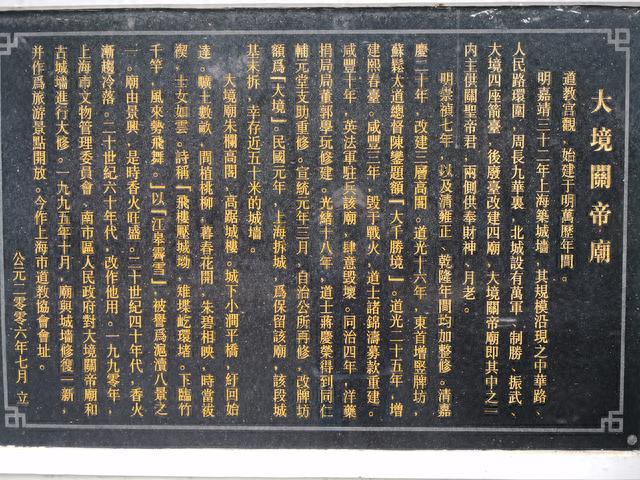 大境關帝廟
道教宮觀，始建于明萬歷年間。
明嘉靖三十二年上海築城墻，其規模沿現之中華路、
人民路環圍，周長九華裏，北城設有萬軍、制勝、振武、
大境四座箭臺，後廢臺改建四廟，大境關帝廟即其中之一，
内主供關聖帝君，兩側供奉財神，月老。
明崇禎七年，以及清雍正、乾隆年間均加整修。清嘉
慶二十年，改建三層高閣。道光十六年，東首增竪牌坊，
蘇鬆太道總督陳鑾題額『大千勝境』，道光二十五年，增
建熙春臺。咸豐三年，毁于戰火，道士諸錦濤募款重建。
咸豐十年，英法軍駐扎該廟，肆意毁壞。同治四年，洋藥
捐局局董郭學玩修建。光緒十八年，道士蔣慶榮得到同仁
輔元堂支助重修。宣統元年三月，自治公所再修，改牌坊
額爲『大境』。民國元年，上海拆城，爲保留該廟，該段城
基未拆，幸存近五十米的城墻。
大境廟朱欄高閣，高踞城樓。城下小澗平橋，紆回始
達。曠土數畝，間植桃柳，暮春花開，朱碧相映，時當祓
禊，士女如雲。詩稱『飛樓壓城坳，雉堞屹環堵。下臨竹
千竿，風來勢飛舞。』以『江皋霽雪』，被譽爲滬瀆八景之
一。廟由景興，是時香火旺盛。二十世紀四十年代，香火
漸趨冷落。二十世紀六十年代，改作他用。一九九零年，
上海市文物管理委員會、南市區人民政府對大境關帝廟和
古城墻進行大修。一九九五年十月，廟與城墻修復一新，
并作爲旅游景點開放。今作上海市道教協會會址。
公元二零零六年七月 立